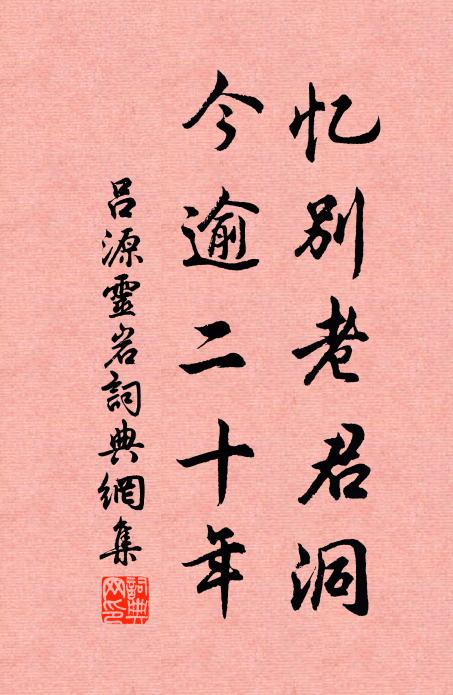 忆别老君洞
今逾二十年
吕源靈岩詞典網集
詞典网印